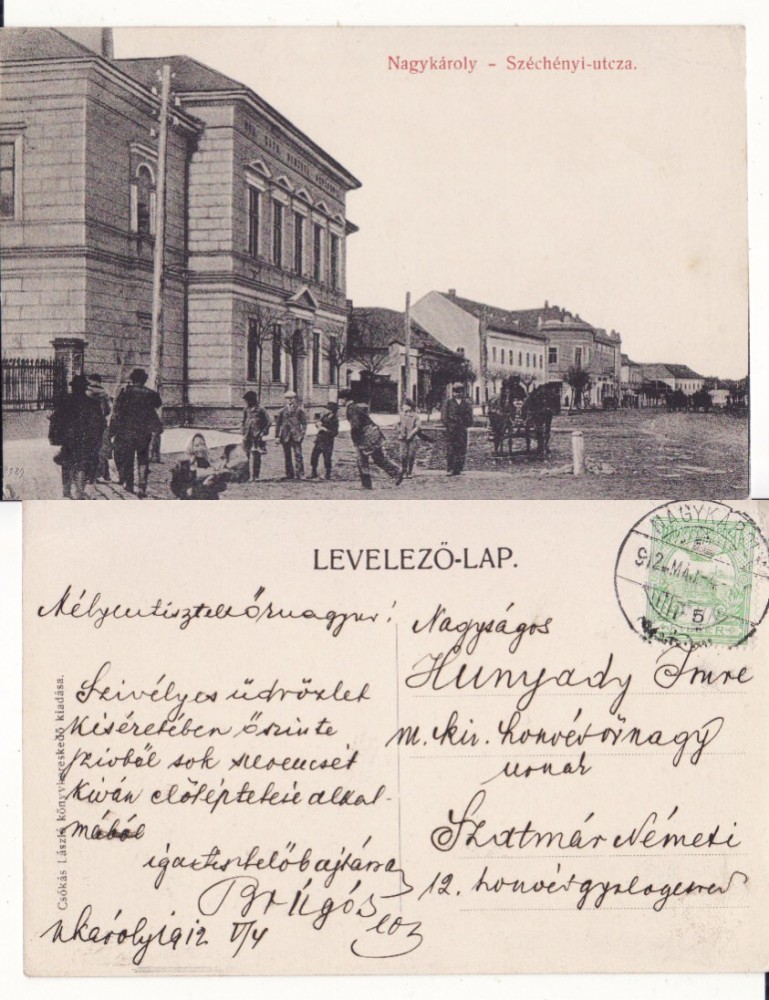 Nagykároly - Széchényi-utcza.
LEVELEZŐ-LAP.
NAGYKÁROLY
912 MÁJ. 4
5
Csókás László könyvkereskedő kiadása.
Mélyentisztelt őrnagyur!
Szivélyes üdvözlet
kiséretében őszinte
szivből sok szerencsét
kiván előléptetése alkal-
mából
igaz tisztelő bajtársa
Brúgós
Nkároly 1912 V/4
Nagyságos
Hunyady Imre
m. kir. honvéd őrnagy
urnak
Szatmár Németi
12. honvéd gyalogezred